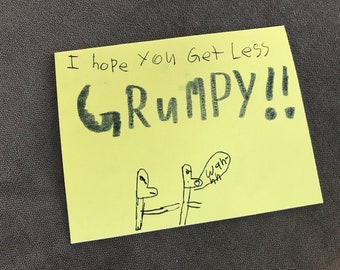 I hope You Get Less
GRuMPY!!
WAH
AH